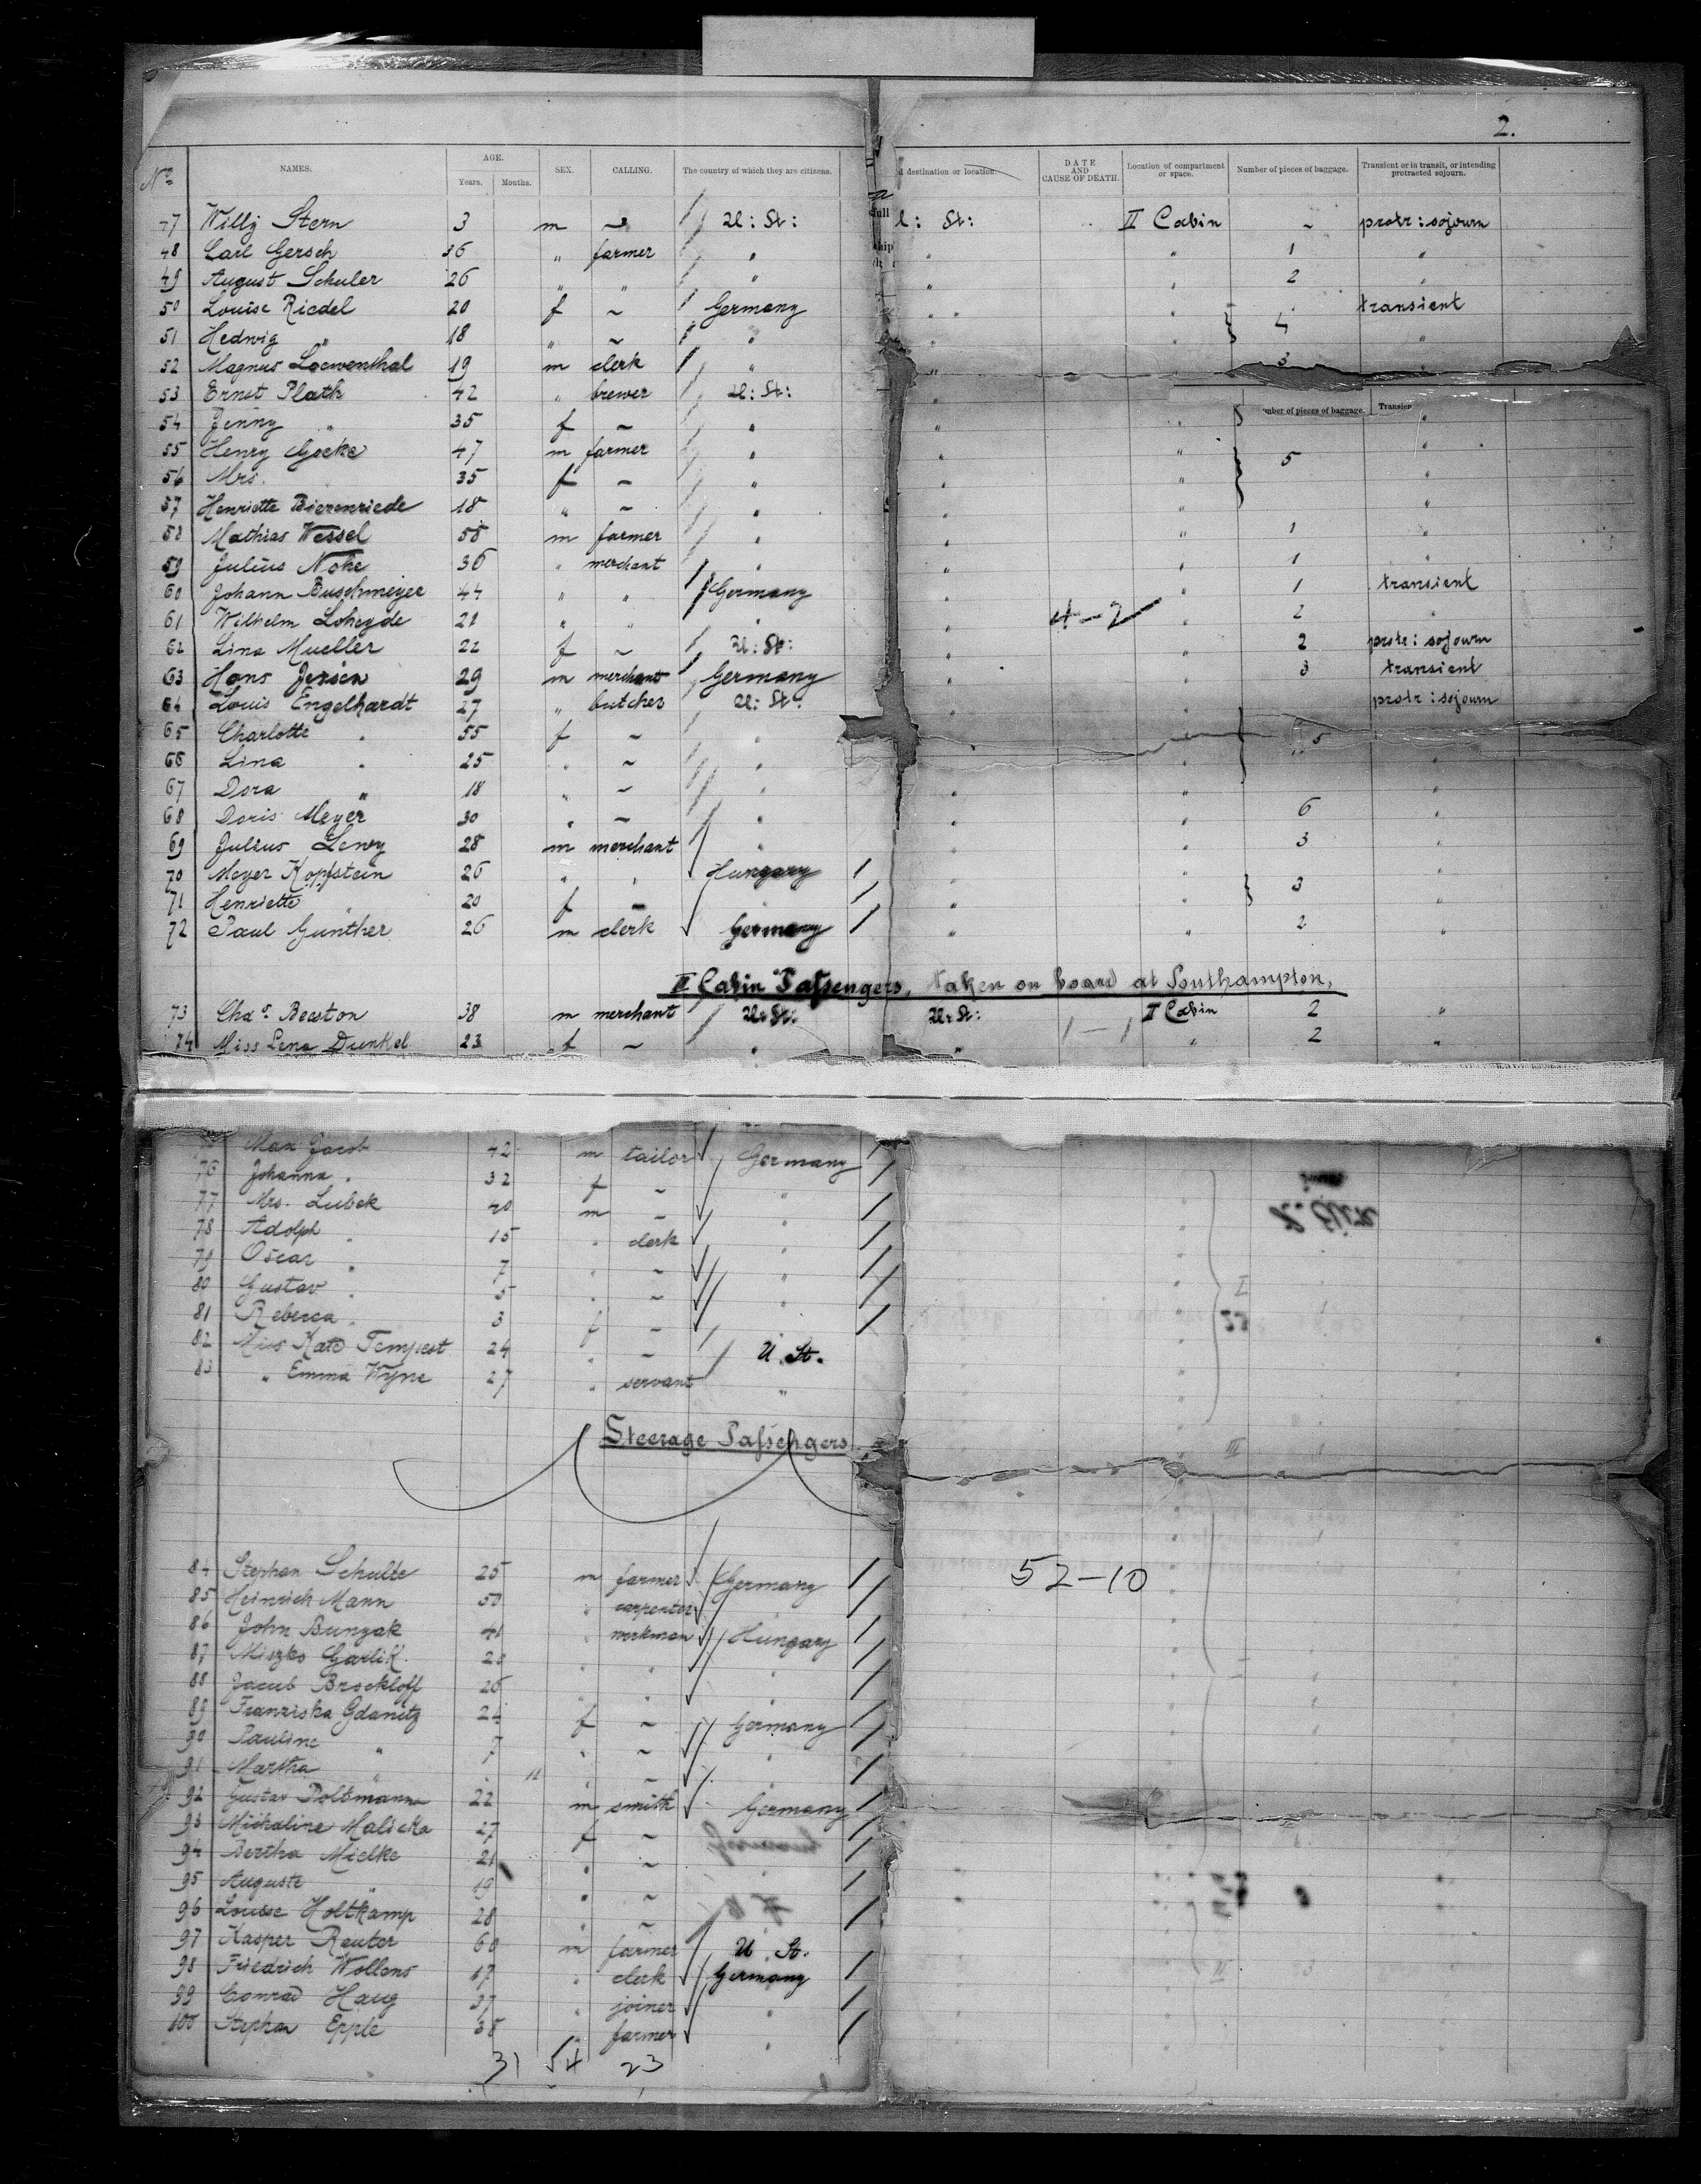 2.
No. NAMES. AGE. Years. Months. SEX. CALLING. The country of which they are citizens. d destination or location. DATE AND CAUSE OF DEATH. Location of compartment or space. Number of pieces of baggage. Transient or in transit, or intending protracted sojourn.
47 Willy Stern 3 m ~ U: St: U: St: II Cabin ~ protr: sojourn
48 Carl Gersch 36 " farmer " " " 1 "
49 August Schuler 26 " " " " " 2 "
50 Louise Riedel 20 f ~ Germany " " 4 transient
51 Hedwig " 18 " ~ " " " "
52 Magnus Loewenthal 19 m clerk " " 3
53 Ernst Plath 42 " brewer U: St: "
Number of pieces of baggage. Transien
54 Jenny " 35 f ~ " " " "
55 Henry Goeke 47 m farmer " " " 5 "
56 Mrs. " 35 f ~ " " " "
57 Henriette Bierenriede 18 " ~ " " "
58 Mathias Wessel 58 m farmer " " " 1 "
59 Julius Nohe 36 " merchant " " " 1 "
60 Johann Buschmeyer 44 " " Germany " " 1 transient
61 Wilhelm Loheyde 21 " " " " 4-2 " 2 "
62 Lina Mueller 22 f ~ U: St: " " 2 protr: sojourn
63 Hans Jensen 29 m merchant Germany " " 3 transient
64 Louis Engelhardt 27 " butcher U: St: " " protr: sojourn
65 Charlotte " 55 f ~ " 5
66 Lina " 25 " ~ " " "
67 Dora " 18 " ~ " " " "
68 Doris Meyer 30 " ~ " " " 6 "
69 Julius Lewy 28 m merchant " " " 3 "
70 Meyer Kopfstein 26 " " Hungary " " 3 "
71 Henriette " 20 f ~ " " " "
72 Paul Gunther 26 m clerk Germany " " 2 "
II Cabin Passengers, taken on board at Southampton,
73 Chas. Beaston 38 m merchant U: St: U: St: II Cabin 2 "
74 Miss Lena Dunkel 23 f ~ " " 1-1 " 2 "
Max Jacob 42 m tailor Germany
76 Johanna " 32 f ~ "
77 Mrs. Lubek 40 m ~ "
78 Adolph " 15 " clerk "
79 Oscar " 7 " ~ "
80 Gustav " 5 " ~ "
81 Rebecca " 3 f ~
82 Miss Kate Tempest 24 " ~ U. St.
83 " Emma Wyne 27 " servant "
Steerage Passengers
84 Stephan Schulte 25 m farmer Germany 52-10
85 Heinrich Mann 50 " carpenter "
86 John Bunyak 41 " workman Hungary
87 Miszko Garlik 20 " " "
88 Jacub Brockloff 26 " " "
89 Franziska Gdanitz 24 f ~ Germany
90 Pauline " 7 " ~ "
91 Martha " 11 " ~ "
92 Gustav Poltmann 22 m smith Germany
93 Michaline Malicka 27 f ~
94 Bertha Mielke 21 " ~ "
95 Auguste " 19 " ~
96 Louise Holtkamp 28 " ~
97 Kasper Reuter 60 m farmer U. St.
98 Friedrich Wollens 17 " clerk Germany
99 Conrad Haug 37 " joiner "
100 Stephan Epple 38 " farmer "
31 54 23